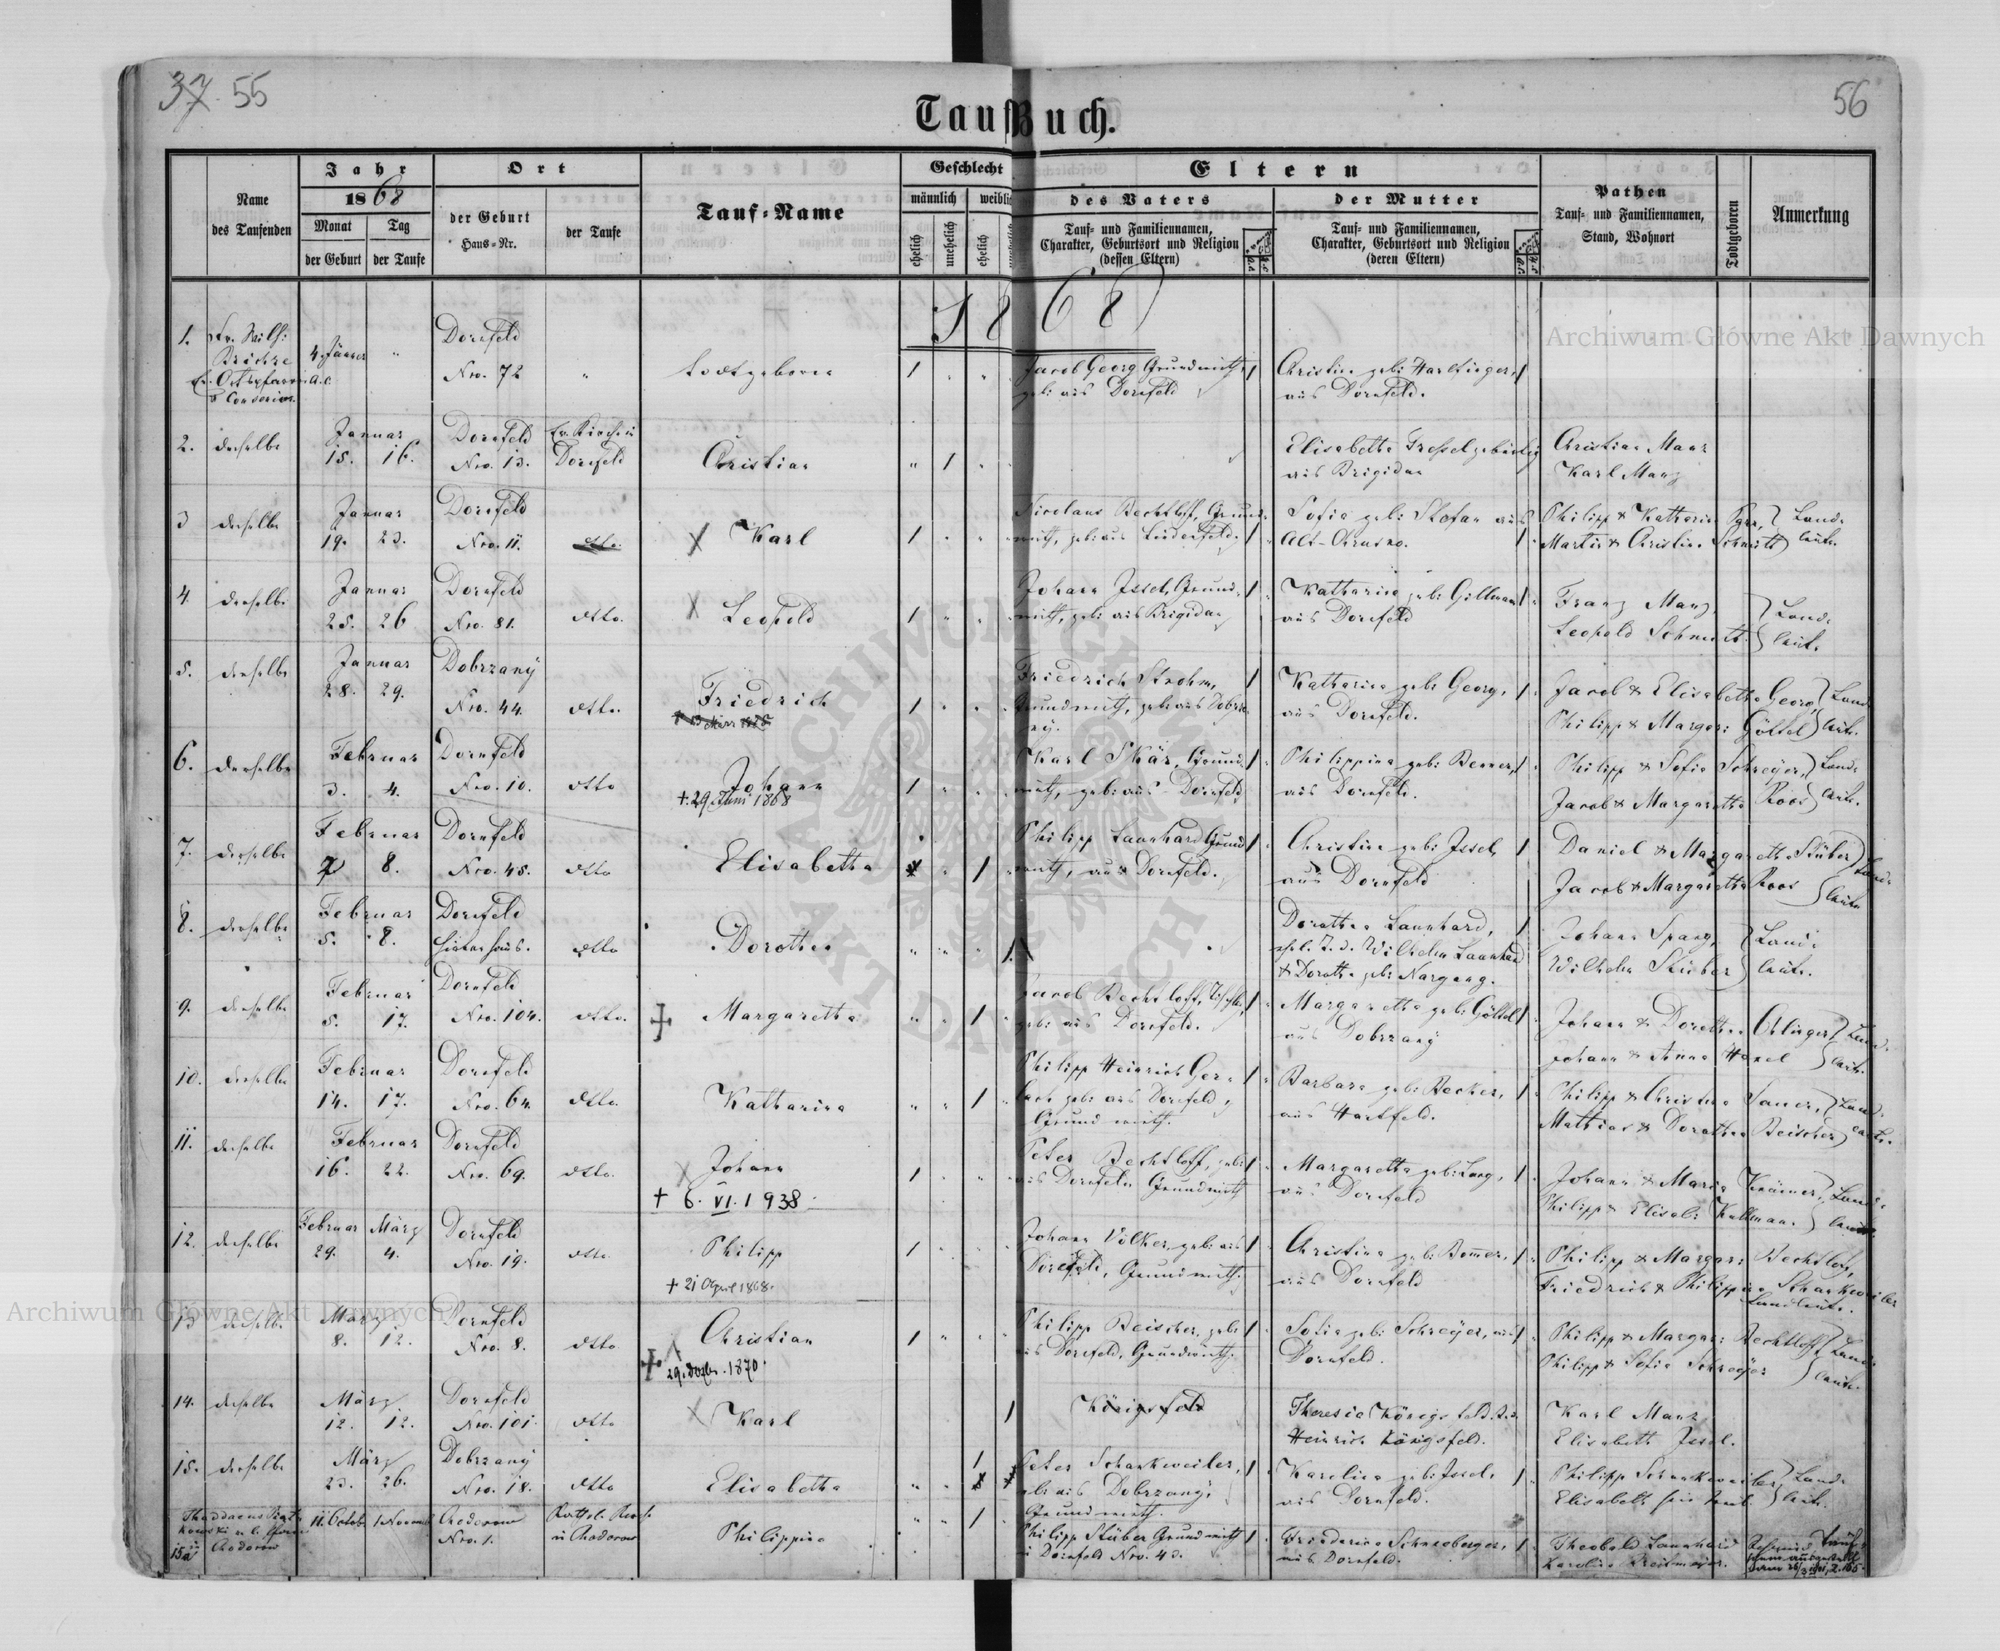 37. 55
56
TaufBuch.
Name
des Taufenden
Jahr
1868
Monat
Tag
der Geburt
der Taufe
Ort
der Geburt
Haus-Nr.
der Taufe
Tauf-Name
Geschlecht
männlich
weiblich
ehelich
unehelich
ehelich
Eltern
des Vaters
Tauf- und Familiennamen,
Charakter, Geburtsort und Religion
(dessen Eltern)
der Mutter
Tauf- und Familiennamen,
Charakter, Geburtsort und Religion
(deren Eltern)
Pathen
Tauf- und Familiennamen,
Stand, Wohnort
Todtgeboren
Anmerkung
1868
1.
4. Jänner
Dornfeld
Nro. 72
todtgeboren
1
Jacob Georg Grundwirth,
geb: aus Dornfeld
Christine geb: Harlfinger,
aus Dornfeld.
2. derselbe
Januar
15. 16.
Dornfeld
Nro. 13.
Ev. Kirche in
Dornfeld
Christian
1
Elisabetha
aus Brigidau
Christian Manz
Karl Manz
3 derselbe
Januar
19. 23.
Dornfeld
Nro. 11.
dtto.
Karl
1
Nicolaus Bechtloff, Grund-
wirth, geb: aus Lindenfeld.
Sofia geb: Stefan aus
Alt-Chrusno.
Philipp & Katharina
Martin & Christine Schmitt
Land-
leute.
4. derselbe
Januar
25. 26
Dornfeld
Nro. 81.
dtto.
Leopold
1
Johann Issel, Grund-
wirth, geb: aus Brigidau
Katharina geb: Gillmann
aus Dornfeld
Franz Manz,
Leopold Schmitt
Land-
leute.
5. derselbe
Januar
28. 29.
Dobrzany
Nro. 44.
dtto.
Friedrich
1
Friedrich Strohm,
Grundwirth, geb: aus Dobrza-
ny.
Katharina geb: Georg,
aus Dornfeld.
Jacob & Elisabetha Georg,
Philipp & Margar: Göttel
Land-
leute.
6. derselbe
Februar
3. 4.
Dornfeld
Nro. 10.
dtto
Johann
+ 29. Juni 1868
1
Karl Skär, Grund-
wirth, geb: aus Dornfeld
Philippina geb: Renner,
aus Dornfeld.
Philipp & Sofia Schreyer,
Jacob & Margaretha Roos
Land-
leute.
7. derselbe
Februar
7 8.
Dornfeld
Nro. 45.
dtto
Elisabetha
1
Philipp Launhard Grund-
wirth, aus Dornfeld.
Christine geb: Issel,
aus Dornfeld
Daniel & Margaretha Stüber
Jacob & Margaretha Roos
Land-
leute
8. derselbe
Februar
5. 8.
Dornfeld
Hirtenhaus.
dtto
Dorothea
1
Dorothea Launhard,
ehel. T. d. Wilhelm Launhard
& Dorothea geb: Nargang.
Johann Spang,
Wilhelm Stüber
Land-
leute.
9. derselbe
Februar
5. 17.
Dornfeld
Nro. 104.
dtto.
Margaretha
1
Jacob Bechtloff, Tischler,
geb: aus Dornfeld.
Margaretha geb: Göttel
aus Dobrzany
Johann & Dorothea
Johann & Anna
Land-
leute.
10. derselbe
Februar
14. 17.
Dornfeld
Nro. 64.
dtto.
Katharina
1
Philipp Heinrich Ger-
lach geb: aus Dornfeld,
Grundwirth.
Barbara geb: Becker,
aus Hartfeld.
Philipp & Christine Sauer,
Mathias & Dorothea Beischer
Land-
leute.
11. derselbe
Februar
16. 22.
Dornfeld
Nro. 69.
dtto.
Johann
+ 6. VI. 1938
1
Peter Bechtloff, geb:
aus Dornfeld Grundwirth
Margaretha geb: Lang,
aus Dornfeld
Johann & Maria Krämer,
Philipp & Elisab: Kullmann
Land-
leute
12. derselbe
Februar März
29. 4.
Dornfeld
Nro. 19.
dtto
Philipp
+ 21 April 1868.
1
Johann Volker, geb: aus
Dornfeld, Grundwirth.
Christina geb: Bomer,
aus Dornfeld
Philipp & Margar: Bechtloff,
Friedrich & Philippina Schankweiler
Landleute.
13 derselbe
März
8. 12.
Dornfeld
Nro. 8.
dtto
Christian
29. Dezbr. 1870.
1
Philipp Beischer, geb:
aus Dornfeld, Grundwirth.
Sofia geb: Schreyer, aus
Dornfeld.
Philipp & Margar: Bechtloff,
Philipp & Sofia Schreyer
Land-
leute.
14. derselbe
März
12. 12.
Dornfeld
Nro. 101.
dtto
Karl
1
Königsfeld
Theresia Königsfeld, T. d.
Heinrich Königsfeld.
Karl Manz
Elisabeth Issel.
15. derselbe
März
23. 26.
Dobrzany
Nro. 18.
dtto
Elisabetha
1
Peter Schankweiler,
geb: aus Dobrzany,
Grundwirth.
Karolina geb: Issel,
aus Dornfeld.
Philipp Schankweiler,
Elisabeth
Land-
leute.
15a
Chodorow
11. Octob. 1 Novem
Chodorow
Nro. 1.
in Chodorow
Philippina
1
Philipp Stüber Grundwirth
in Dornfeld Nro. 43.
Friederica Schneeberger,
aus Dornfeld.
Theobald Launhard
Archiwum Główne Akt Dawnych
Archiwum Główne Akt Dawnych
ARCHIWUM GŁÓWNE AKT DAWNYCH